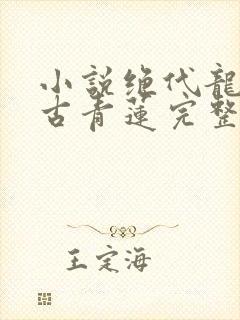 小說绝代龍
古青蓮完整
王定海